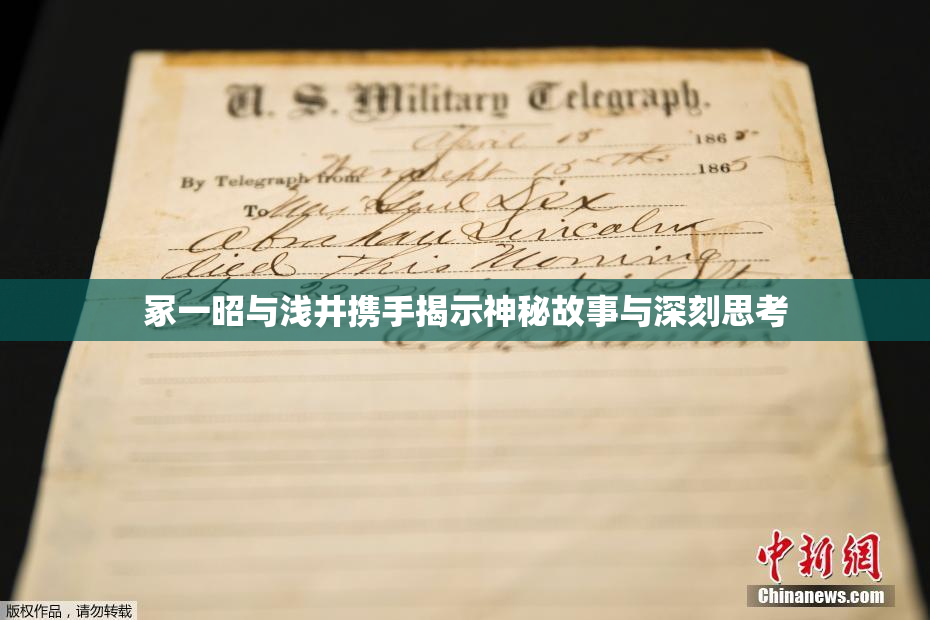 U. S. Military Telegraph.
April 15 1865
By Telegraph from War Dept 15th 1865
To Maj Genl Dix
Abraham Lincoln
died This Morning
22 minutes after
冢一昭与浅井携手揭示神秘故事与深刻思考
E. M. Stanton
中新網
Chinanews.com
版权作品,请勿转载